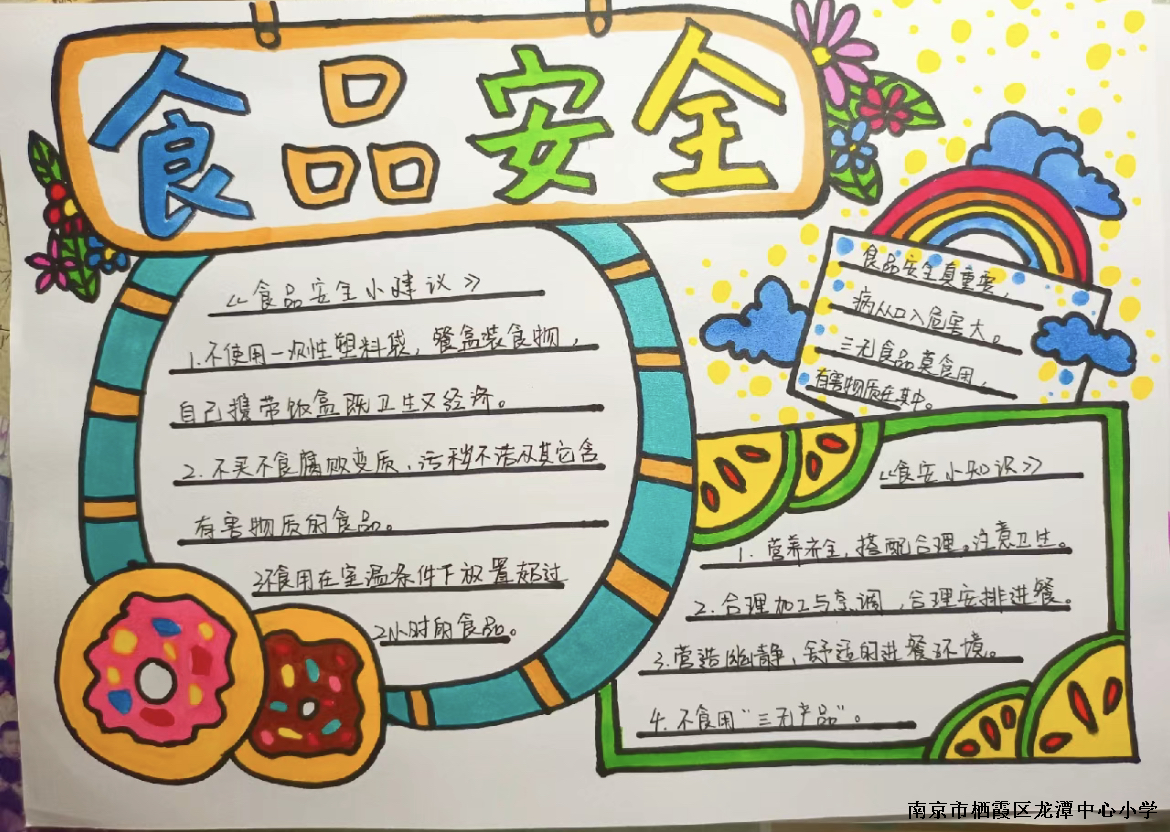 食品安全
《食品安全小建议》
1.不使用一次性塑料袋，餐盒装食物，
自己携带饭盒既卫生又经济。
2.不买不食腐败变质、污秽不洁及其它含
有害物质的食品。
不食用在室温条件下放置超过
2小时的食品。
食品安全真重要，
病从口入危害大。
三无食品莫食用，
有害物质在其中。
《食安小知识》
1.营养齐全，搭配合理。注意卫生。
2.合理加工与烹调，合理安排进餐。
3.营造幽静、舒适的进餐环境。
4.不食用“三无产品”。
南京市栖霞区龙潭中心小学